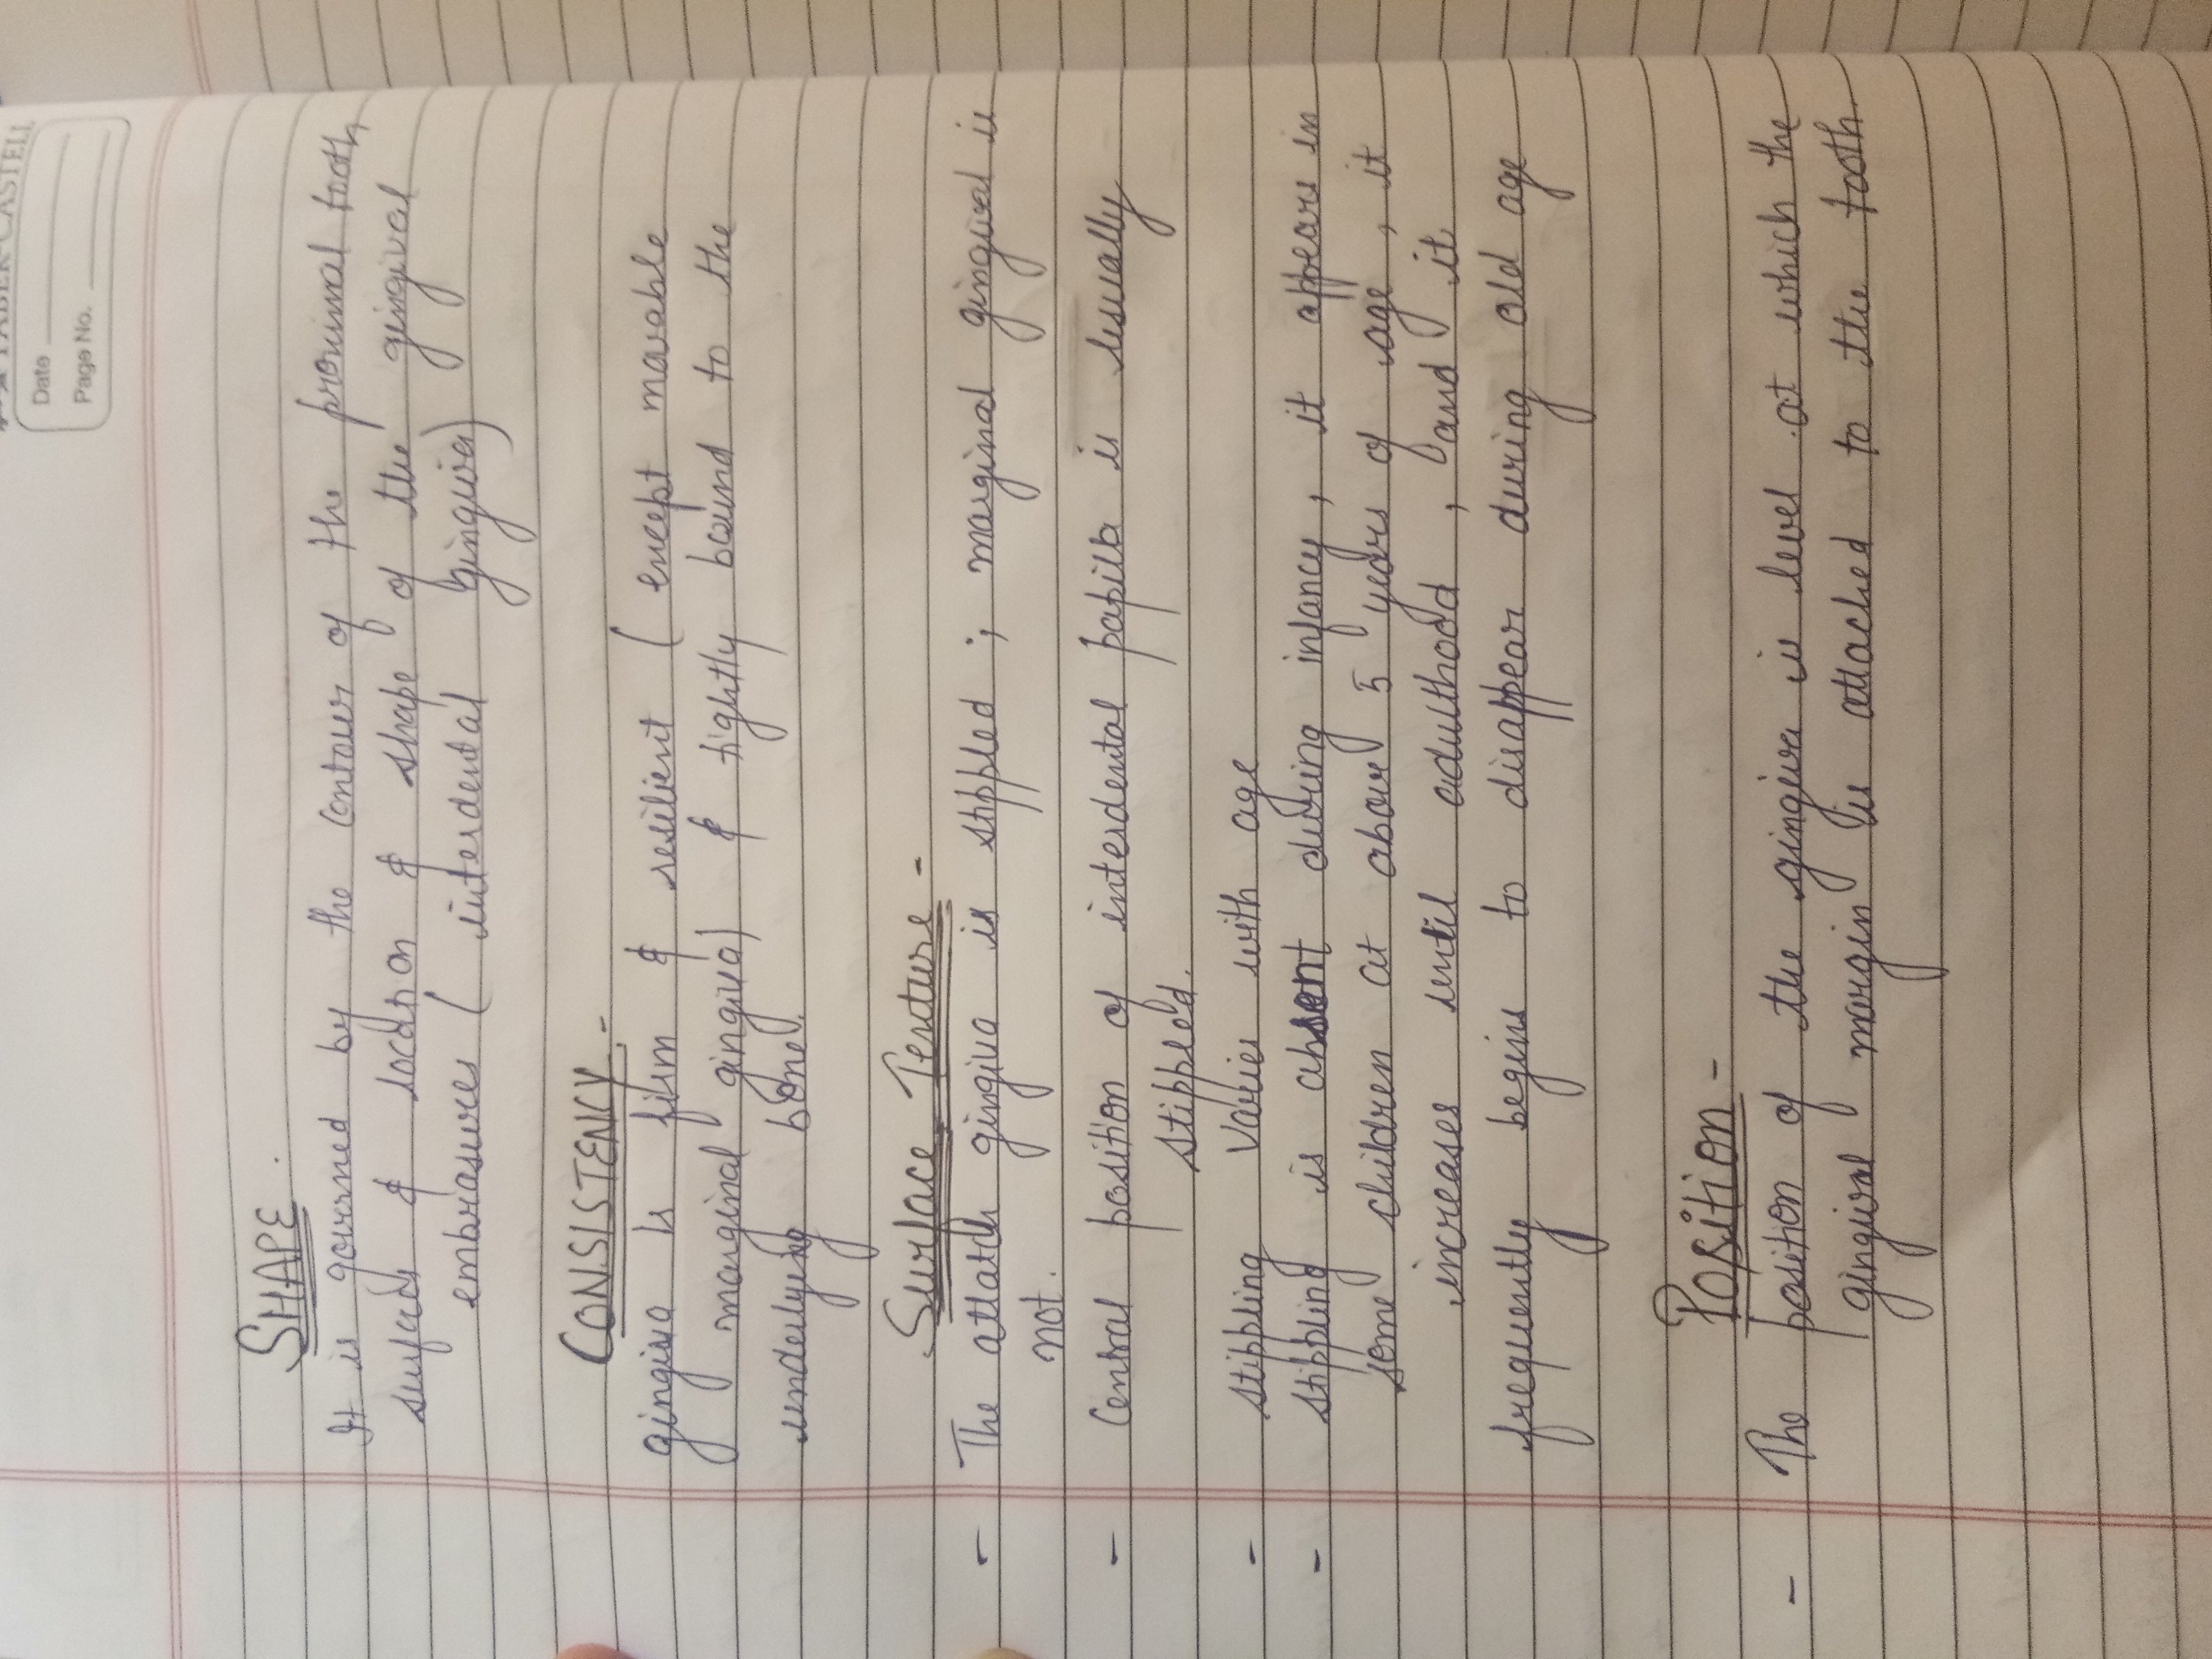 FABER-CASTELL
Date
Page No.
SHAPE.
It is governed by the contour of the proximal tooth
surfaces & location & shape of the gingival
embriasures (interdental gingiva)
CONSISTENCY:-
gingiva is firm & resilient (except movable
marginal gingiva) & tightly bound to the
underlying bone.
Surface Texture -
- The attatch gingiva is stippled ; marginal gingival is
not.
- Central position of interdental papilla is usually
stippled.
- stippling varies with age
- stippling is absent during infancy, it appears in
some children at above 5 years of age, it
increases until adulthood, and it
frequently begins to disappear during old age
Position -
- The position of the gingiva is level at which the
gingival margin is attached to the tooth.